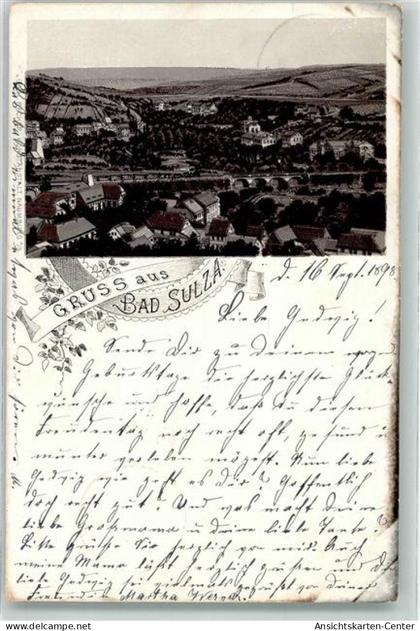 GRUSS aus
BAD SULZA.
d. 16 Sept. 1898
Liebe Hedwig!
Sende Dir zu Deinem
Geburtstage die herzlichsten Glück-
wünsche und hoffe, daß du diesen
Freudentag noch recht oft, gesund u
munter verleben mögest. Nun liebe
Hedwig wie geht es dir? Hoffentlich
doch recht gut? Und was macht deine
liebe Großmama u deine liebe Tante?
Bitte grüße Sie herzlich von mir. Auch
meine Mama läßt herzlich grüßen und
liebe Hedwig sei vielmals gegrüßt von deiner
Freundin Martha
Ansichtskarten-Center